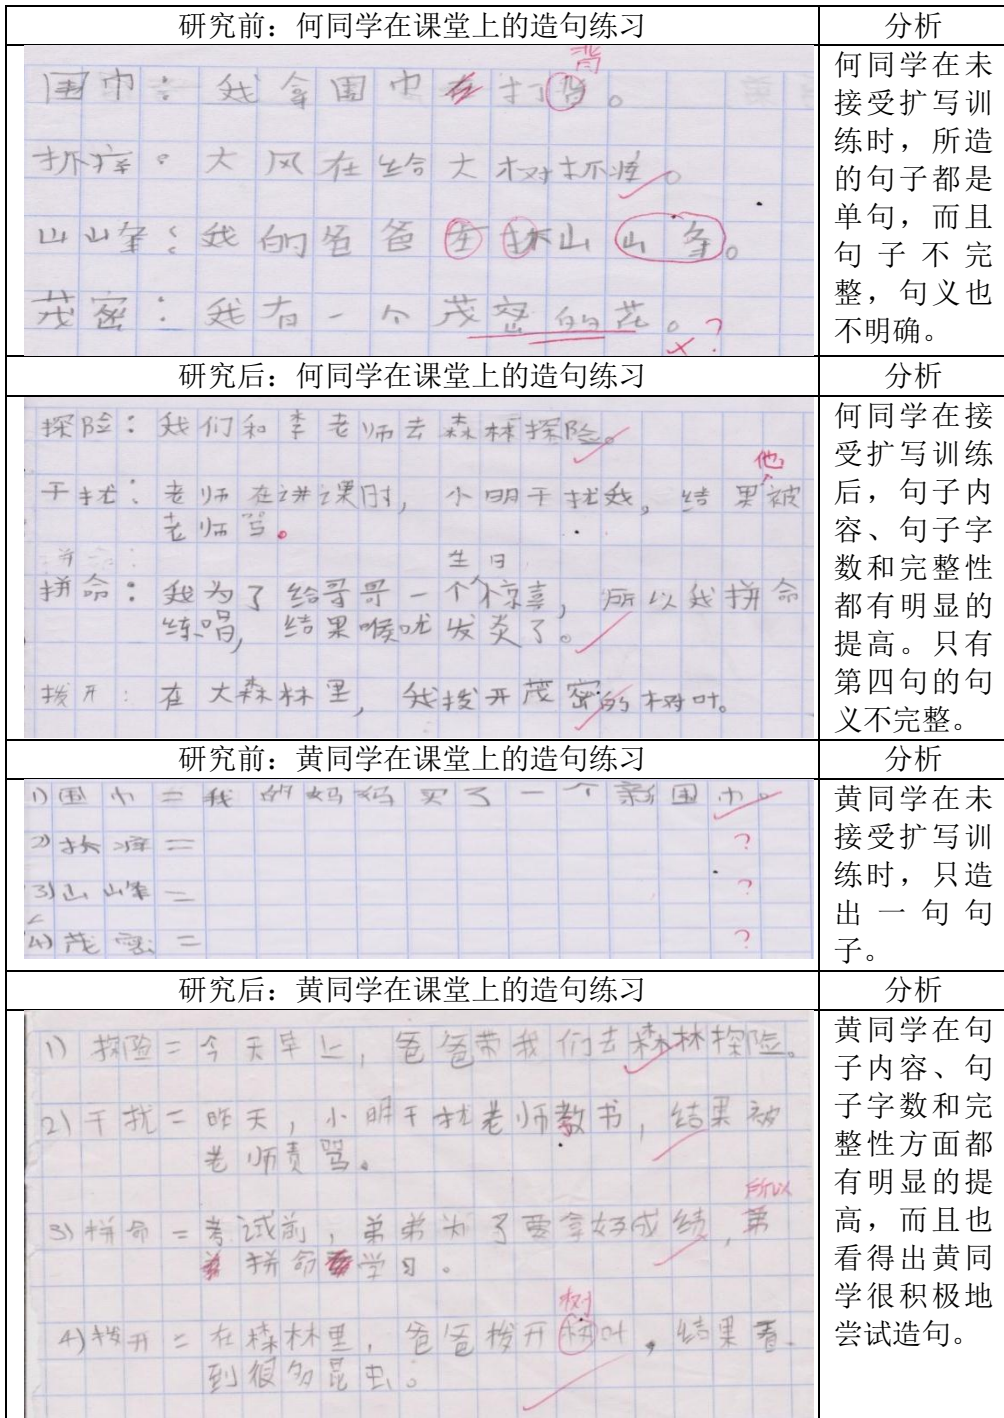 研究前：何同学在课堂上的造句练习
分析
背
围巾：我拿围巾在打背。
抓痒：大风在给大树抓痒。
山峰：我的爸爸在抹山山峰。
茂密：我有一个茂密的花。
× ?
何同学在未
接受扩写训
练时，所造
的句子都是
单句，而且
句子不完
整，句义也
不明确。
研究后：何同学在课堂上的造句练习
分析
探险：我们和李老师去森林探险。
他
干扰：老师在讲课时，小明干扰我，结果被
老师骂。
生日
拼命：我为了给哥哥一个惊喜，所以我拼命
练唱，结果喉咙发炎了。
拨开：在大森林里，我拨开茂密的树叶。
何同学在接
受扩写训练
后，句子内
容、句子字
数和完整性
都有明显的
提高。只有
第四句的句
义不完整。
研究前：黄同学在课堂上的造句练习
分析
1) 围巾 = 我的妈妈买了一个新围巾。
2) 抓痒 = ?
3) 山峰 = ?
4) 茂密 = ?
黄同学在未
接受扩写训
练时，只造
出一句句
子。
研究后：黄同学在课堂上的造句练习
分析
1) 探险 = 今天早上，爸爸带我们去森林探险。
2) 干扰 = 昨天，小明干扰老师教书，结果被
老师责骂。
所以
3) 拼命 = 考试前，弟弟为了要拿好成绩，弟
弟拼命学习。
树
4) 拨开 = 在森林里，爸爸拨开树叶，结果看
到很多昆虫。
黄同学在句
子内容、句
子字数和完
整性方面都
有明显的提
高，而且也
看得出黄同
学很积极地
尝试造句。